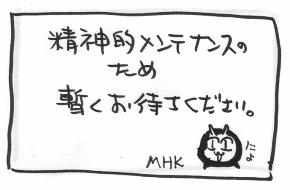 精神的メンテナンスの
ため
暫くお待ちください。
MHK
によ